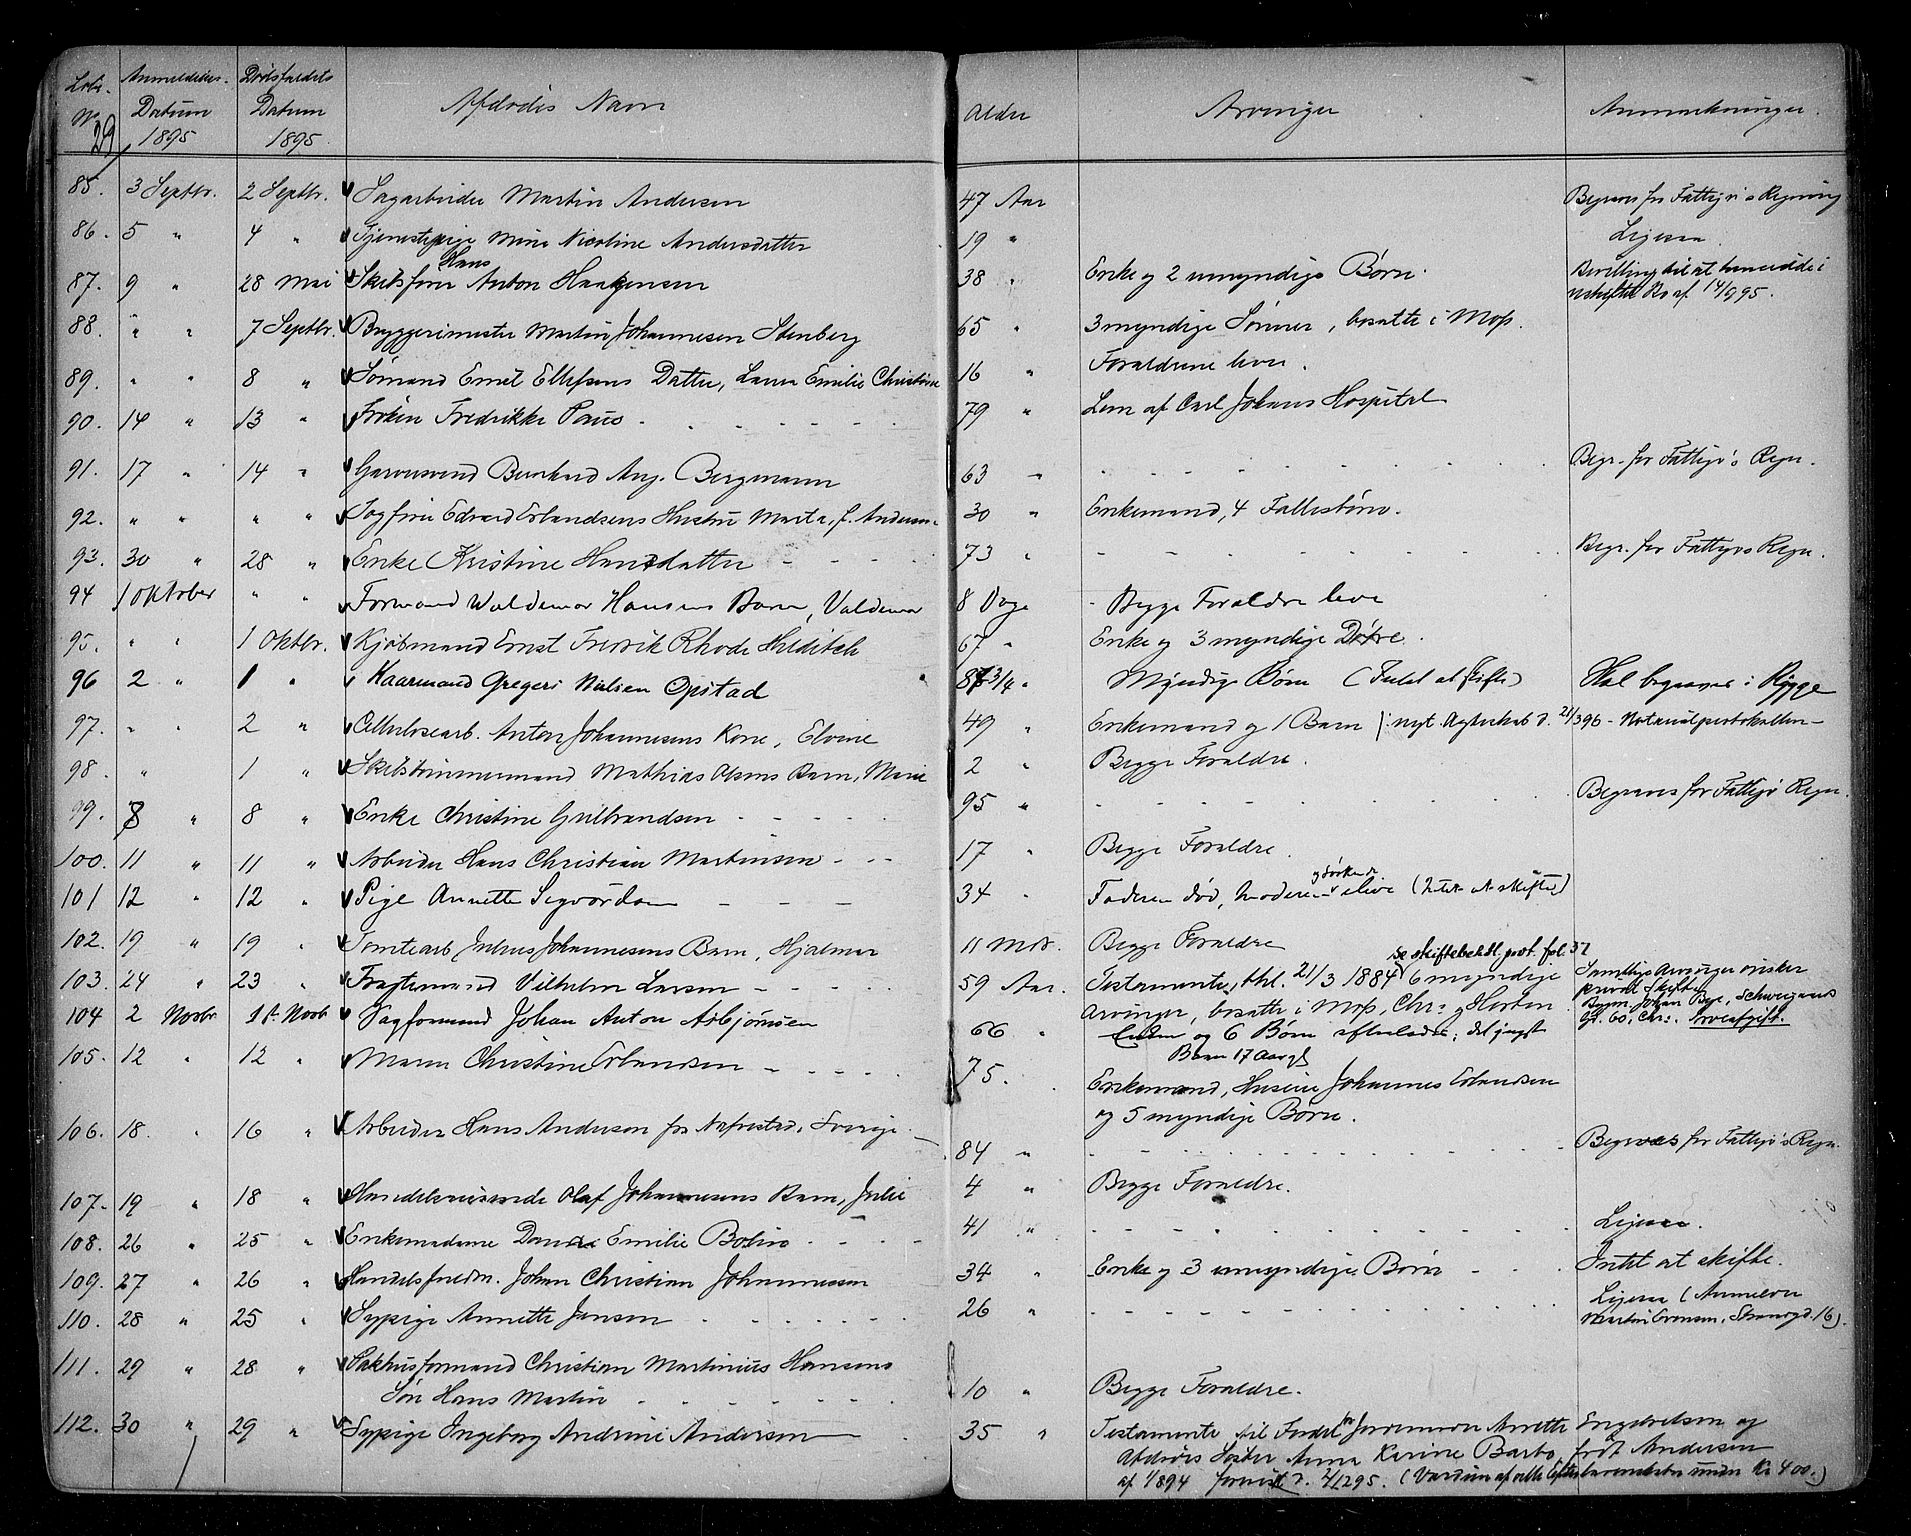 Løbe- Anmeldelses- Dødsfaldets Afdødes Navn Alder Arvinger Anmærkninger.
No Datum Datum
29 1895 1895
85. 3 Septbr. 2 Septbr. Sagarbeider Martin Andersen 47 Aar Begraves for Fattigv's Regning
86. 5 " 4 " Tjenestepige Mina Nicoline Andersdatter 19 " Ligesaa.
Hans
87. 9 " 28 Mai Skibsfører Anton Haagensen 38 " Enke og 2 umyndige Børn. Bevilling til at hensidde i
uskiftet Bo af 14/9 95.
88. " " 7 Septbr. Bryggerimester Martin Johannesen Stenberg 65 " 3 myndige Sønner, bosatte i Moss.
89. " " 8 " Sømand Emil Ellefsens Datter, Laura Emilie Christine 16 " Forældrene lever.
90. 14 " 13 " Frøken Fredrikke Paus 79 " Lem af Carl Johans Hospital
91. 17 " 14 " Garversvend Bernhard Aug. Bergmann 63 " Begr. for Fattigv's Regn.
92. " " " " Togfører Edvard Erlandsens Hustru Marta, f. Andersen 30 " Enkemand, 4 Fællesbørn.
93. 30 " 28 " Enke Kristine Hansdatter 73 " Begr. for Fattigvs Regn.
94 1 Oktober " " Formand Waldemar Hansens Barn, Valdemar 8 Dage Begge Forældre leve
95. " " 1 Oktbr. Kjøbmand Ernst Fredrik Rhode Hilditch 67 " Enke og 3 myndige Døtre.
96 2 " 1 " Kaarmand Gregers Nielsen Opstad 87 3/4 " Myndige Børn (Intet at skifte) Skal begraves i Rygge
97. " " 2 " Cellulosearb. Anton Johannesens Kone, Elvine 49 " Enkemand og 1 Barn /: nyt Ægteskab d. 21/3 96 - Notarialprotokollen -
98. " 1 " Skibstømmermand Mathias Olsens Barn, Marie 2 " Begge Forældre.
99. 8 " 8 " Enke Christine Gulbrandsen 95 " Begraves for Fattigv Regn.
100. 11 " 11 " Arbeider Hans Christian Martinsen 17 " Begge Forældre.
og Søskende
101 12 " 12 " Pige Annette Segvordsen 34 " Faderen død, Moderen ilive (Intet at skifte)
102. 19 " 19 " Tomtearb Julius Johannesens Barn, Hjalmar 11 Mdr. Begge Forældre
se skiftebehdl. prot. fol. 37
103. 24 " 23 " Fragtemand Vilhelm Larsen 59 Aar. Testamente, thl. 21/3 1884 6 myndige Samtlige Arvinger ønsker
privat skifte
arvinger, bosatte i Moss, Chr: og Horten Bygm. Johan Bye, Schweigaards
Gd. 60, Chr:. Arveafgift.
104 2 Novbr 1st Novb Sagformand Johan Anton Asbjørnsen 66 " Enken og 6 Børn efterlader, det yngst
Barn 17 Aargl
105. 12 " 12 " Maren Christine Erlandsen 75. Enkemand, Huseier Johannes Erlandsen
og 5 myndige Børn.
106. 18. " 16 " Arbeider Hans Anderson fra , Sverige 84 " Begraves for Fattigv's Regn.
107. 19 " 18 " Handelsreisende Olaf Johannesens Barn, Julie 4 " Begge Forældre.
108. 26 " 25 " Enkemadame Emilie Bolin 41 " Ligesaa.
109. 27 " 26 " Handelsfuldm. Johan Christian Johannessen 34 " Enke og 3 umyndige Børn Intet at skifte.
110. 28 " 25 " Sypige Annette Jensen 26 " Ligesaa (Anmelder
Martin Evensen, Strandgd. 16).
111. 29 " 28 " Pakhusformand Christian Martinius Hansens
Søn Hans Martin 10 " Begge Forældre.
112. 30 " 29 " Sypige Ingeborg Andrine Andersen 35 " Testamente til Fordel for Jordemoder Anette Engebretsen og
Afdødes Søster Anna Karine Barbo, født Andersen
af 1/8 94 d. 2/12 95. (Værdien af alle Efterladenskaber under Kr 400.)